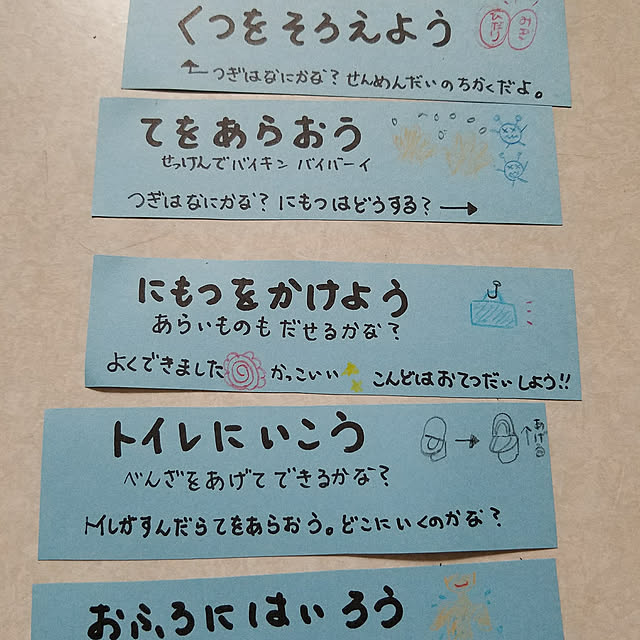 くつをそろえよう
ひだり みぎ
つぎはなにかな？せんめんだいのちかくだよ。
てをあらおう
せっけんでバイキン バイバーイ
つぎはなにかな？にもつはどうする？→
にもつをかけよう
あらいものもだせるかな？
よくできました かっこいい こんどはおてつだいしよう!!
トイレにいこう
あげる
べんざをあげてできるかな？
トイレがすんだらてをあらおう。どこにいくのかな？
おふろにはいろう